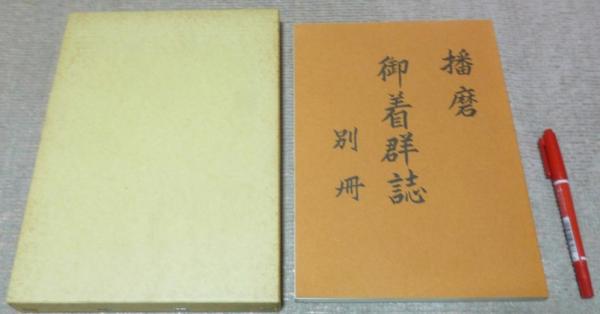 播磨
御着群誌
別冊